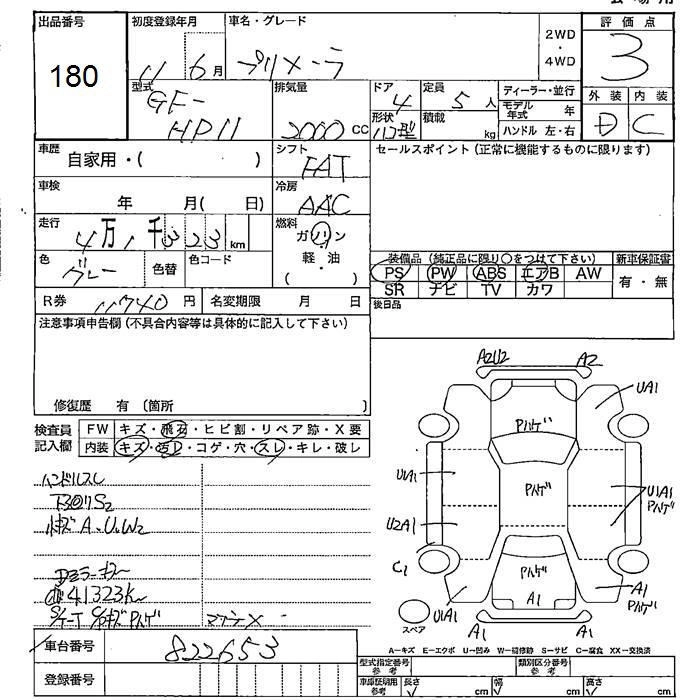 出品番号 初度登録年月 車名・グレード 2WD ・ 4WD 評価点
180 11 6月 プリメーラ 3
型式 排気量 ドア 定員 ディーラー・並行 外装 内装
GF- 4 5人 モデル年式 年 D C
HP11 2000cc 形状 ハコ型 積載 kg ハンドル 左・右
車歴 自家用・( ) シフト FAT セールスポイント(正常に機能するものに限ります)
車検 年 月( 日) 冷房 AAC
走行 4万1千323km 燃料 ガソリン
色 グレー 色替 色コード 軽・油 ( )
装備品(純正品に限り○をつけて下さい) 新車保証書
PS PW ABS エアB AW 有・無
SR ナビ TV カワ
R券 11740円 名変期限 月 日 後日品
注意事項申告欄(不具合内容等は具体的に記入して下さい)
修復歴 有 (箇所 )
検査員記入欄 FW キズ・飛石・ヒビ割・リペア跡・X要
内装 キズ・汚レ・コゲ・穴・スレ・キレ・破レ
A2U2 A2
UA1
Pハゲ
U1A1 Pハゲ U1A1
Pハゲ
U2A1
C1 Pハゲ
A1 A1
Pハゲ
U1A1
スペア A1 A1
ハンドルスレ
41323K
A-キズ E-エクボ U-凹み W-補修跡 S-サビ C-腐食 XX-交換済
車台番号 822653
型式指定番号 参考 類別区分番号 参考
登録番号 車庫証明用 参考 長さ cm 幅 cm 高さ cm